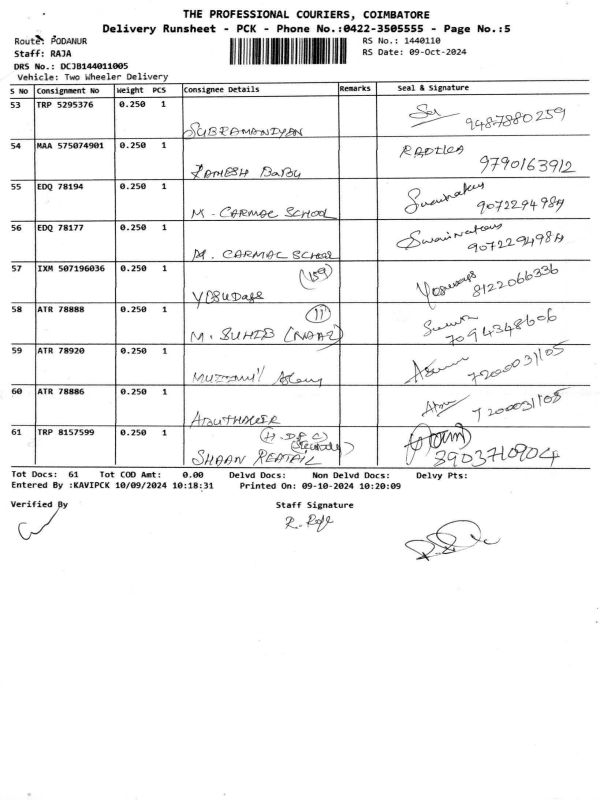 THE PROFESSIONAL COURIERS, COIMBATORE
Delivery Runsheet - PCK - Phone No.:0422-3505555 - Page No.:5
Route: PODANUR
RS No.: 1440110
Staff: RAJA
RS Date: 09-Oct-2024
DRS No.: DCJB144011005
Vehicle: Two Wheeler Delivery
S No Consignment No Weight PCS Consignee Details Remarks Seal & Signature
53 TRP 5295376 0.250 1
SUBRAMANIYAN 9487880259
54 MAA 575074901 0.250 1 RADIKA
RAMESH BABU 9790163912
55 EDQ 78194 0.250 1
M. CARMAC SCHOOL 9072294984
56 EDQ 78177 0.250 1
M. CARMAC SCHOOL 9072294984
57 IXM 507196036 0.250 1 (159)
YESUDASS 8122066336
58 ATR 78888 0.250 1 (11)
M. SUHEB (NAAZ) 7094348606
59 ATR 78920 0.250 1
7200031105
60 ATR 78886 0.250 1
ABUTHAKEER 7200031105
61 TRP 8157599 0.250 1
SHAAN REATAIL 3903710904
Tot Docs: 61 Tot COD Amt: 0.00 Delvd Docs: Non Delvd Docs: Delvy Pts:
Entered By :KAVIPCK 10/09/2024 10:18:31 Printed On: 09-10-2024 10:20:09
Verified By Staff Signature